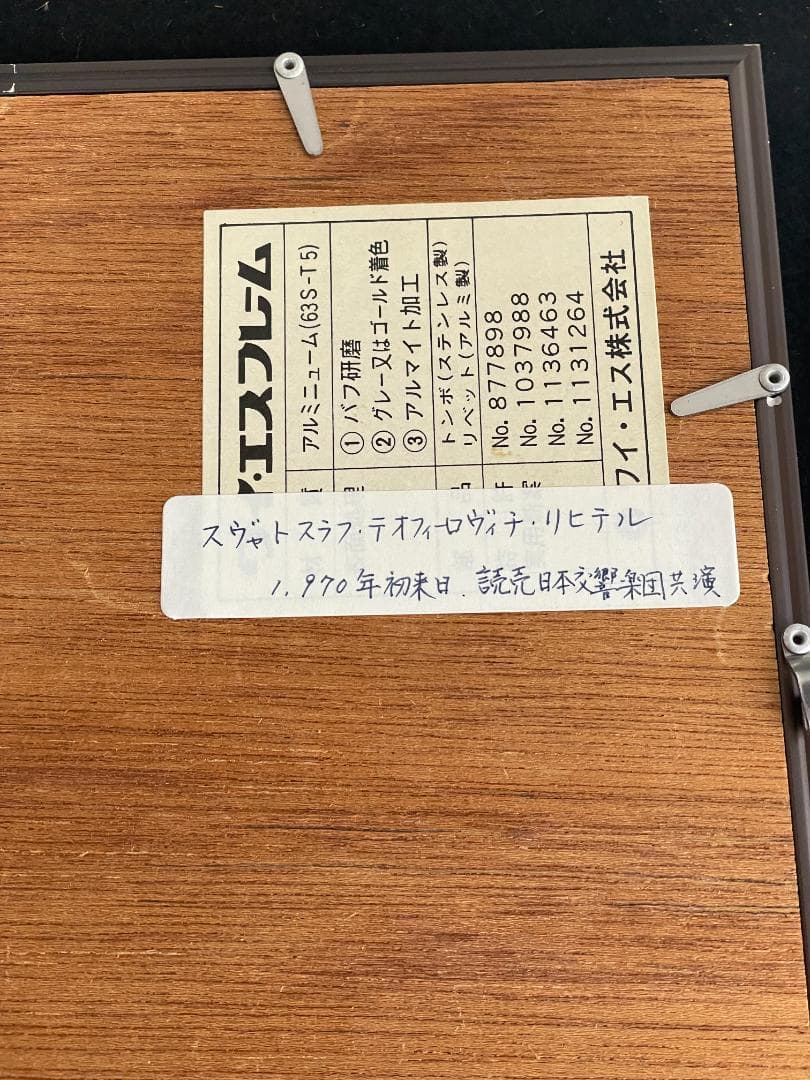 エスフレーム
アルミニューム(63S-T5)
① バフ研磨
② グレー又はゴールド着色
③ アルマイト加工
トンボ(ステンレス製)
リベット(アルミ製)
No. 877898
No. 1037988
No. 1136463
No. 1131264
フイ・エス株式会社
スヴャトスラフ・テオフィーロヴィチ・リヒテル
1,970年初来日. 読売日本交響楽団共演